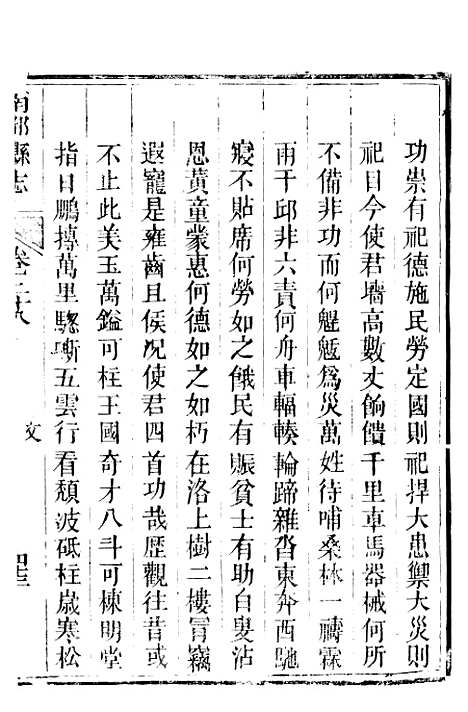 功崇有祀德施民勞定國則祀捍大患禦大災則
祀日今使君墻高數丈餉饋千里車馬器械何所
不備非功而何魃魐爲災萬姓待哺桑林一禱霖
雨千邱非六責何舟車輻輳輪蹄雜沓東奔西馳
寢不貼席何勞如之餓民有賑貧士有助白叟沾
恩黃童蒙惠何德如之如朽在洛上樹二樓冒竊
遐寵是雍齒且侯况使君四首功哉歷觀往昔或
不止此美玉萬鎰可柱王國奇才八斗可棟明堂
指日鵬摶萬里驄嘶五雲行看頹波砥柱歲寒松
南邱縣志 卷之 文